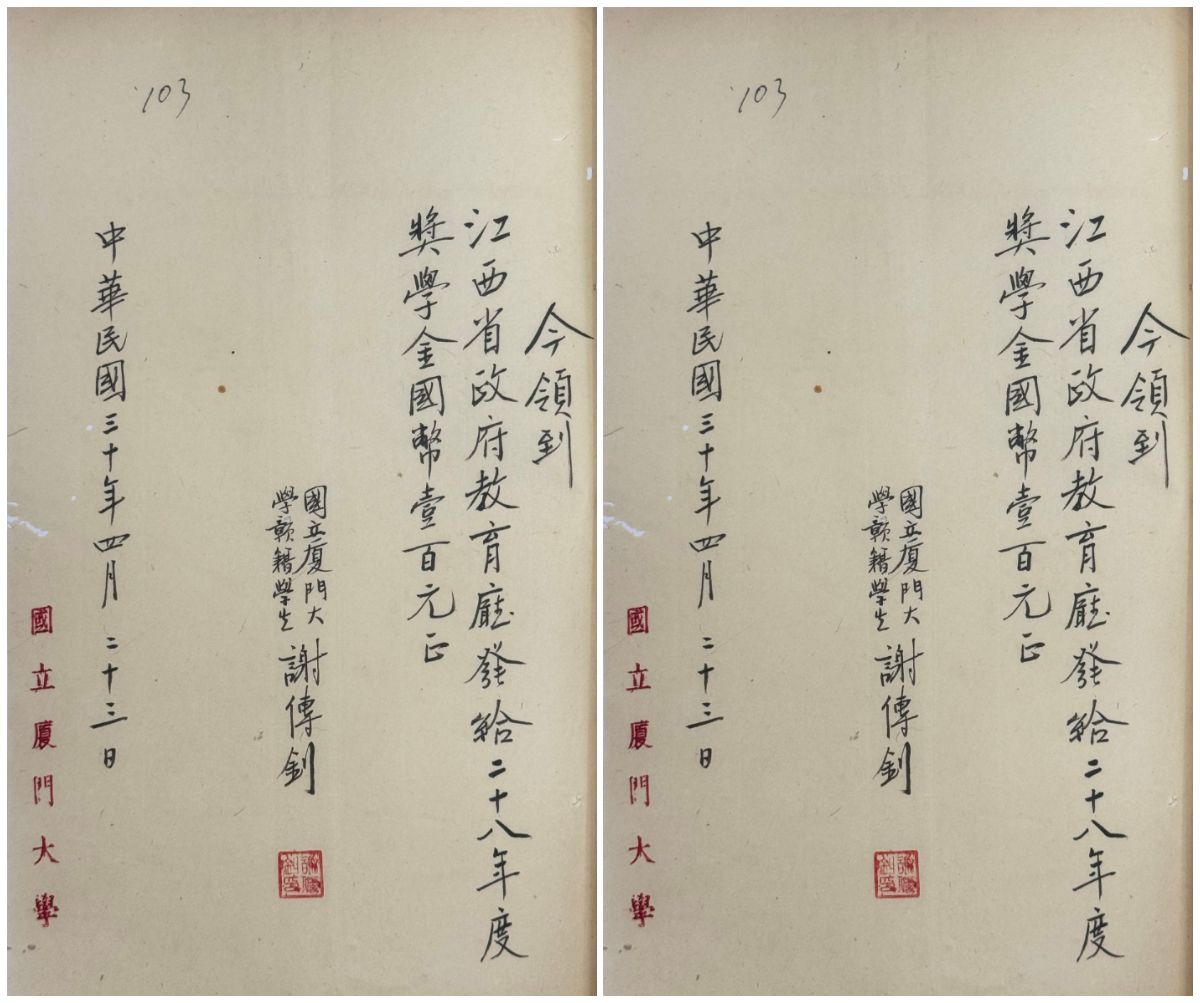 103
今領到
江西省政府教育廳發給二十八年度
獎學金國幣壹百元正
國立廈門大
學贛籍學生
謝傳釗
謝傳釗印
中華民國三十年四月二十三日
國立廈門大學
103
今領到
江西省政府教育廳發給二十八年度
獎學金國幣壹百元正
國立廈門大
學贛籍學生
謝傳釗
謝傳釗印
中華民國三十年四月二十三日
國立廈門大學